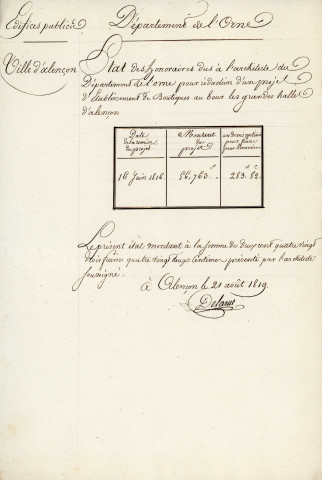 Edifices publics
Département de l'Orne
Ville d'alençon
Etat des honoraires dus à l'architecte du
Département de l'orne pour rédaction d'un projet
d'Etablissement de Boutiques au bour les grandes halles
d'alençon
Date de la remise du projet
Montant du projet
un demi p% pour franc pour honoraires
16 Juin 1816.
56.763 f "
283 f 82 c
Le présent état montant à la somme de deux cent quatre vingt
trois francs quatre vingt deux centimes présenté par l'architecte
soussigné.
à Alençon le 21 août 1819.
Delarue